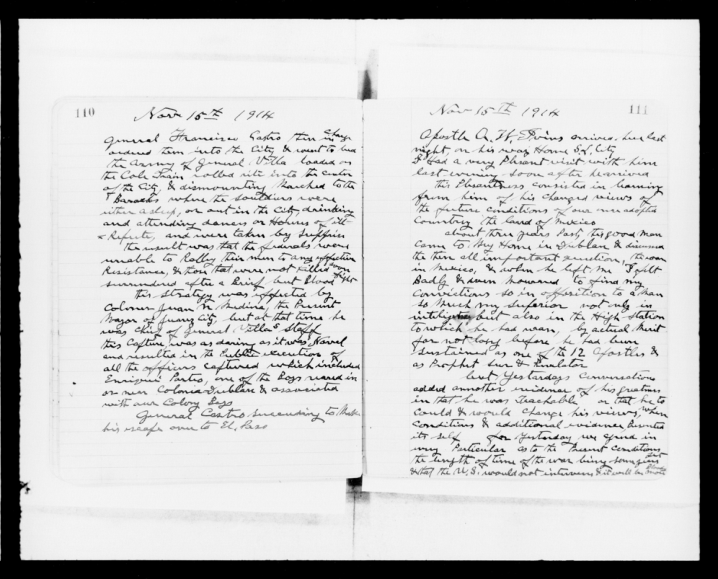 110
Nov 15th 1914
General Francisco Castro then in Charge
ordered them into the City, & went to bed
the Army of General Villa loaded on
the Cole Train rolled rite into the center
of the City, & dismounting Marched to the
Baracks where the Souldiers were
either asleep, or out in the City drinking
and attending dances or Houses of ill-
Repute, and were taken by surprise
the result was that the federals were
unable to Rally their men to any effective
Resistance, & those that were not killed soon
surrendered after a Brief but Blood fight
this Strategy was effected by
Colonel Juan N Medina, the Present
Mayor of Juarez City. but at that time he
was Chief of General Villas Staff
this Capture was as daring as it was Navel
and resulted in the Public execution of
all the officers captured which included
Enrique Portio, one of the Boys reared in
or near Colonia Dublan & associated
with our Colony Boys
General Castro succeeding to Make
his escape over to El, Paso
111
Nov 15th 1914
Apostle A. W, Ivins arrived here last
night, on his way Home S, L, City
I Had a very Plesant visit with him
last evening soon after he arrived
this Plesantness consisted in learning
from him of his changed views of
the future conditions of our own adopted
Country the land of Mexico
about three years Past, this good man
came to My Home in Dublan & discused
the then all important question, the war
in Mexico, & when he left me I felt
Badly & even Mourned to find my
Convictions so in opposition to a Man
so Much my Superior not only in
inteligence but also in the High station
to which he had risen, by actual Merit
for not long before he had been
sustained as one of the 12 Apostles &
as Prophet Seer & Revelator
but Yesterdays Conversations
added another evidence of his greatness
in that he was teachable or that he to
could & would change his views, when
Conditions & additional evidence Presented
its self for Yesterday we agreed in
every Particular as to the Present Conditions
the length of time of the war being some years
& that the U.S. would not intervene & it will be